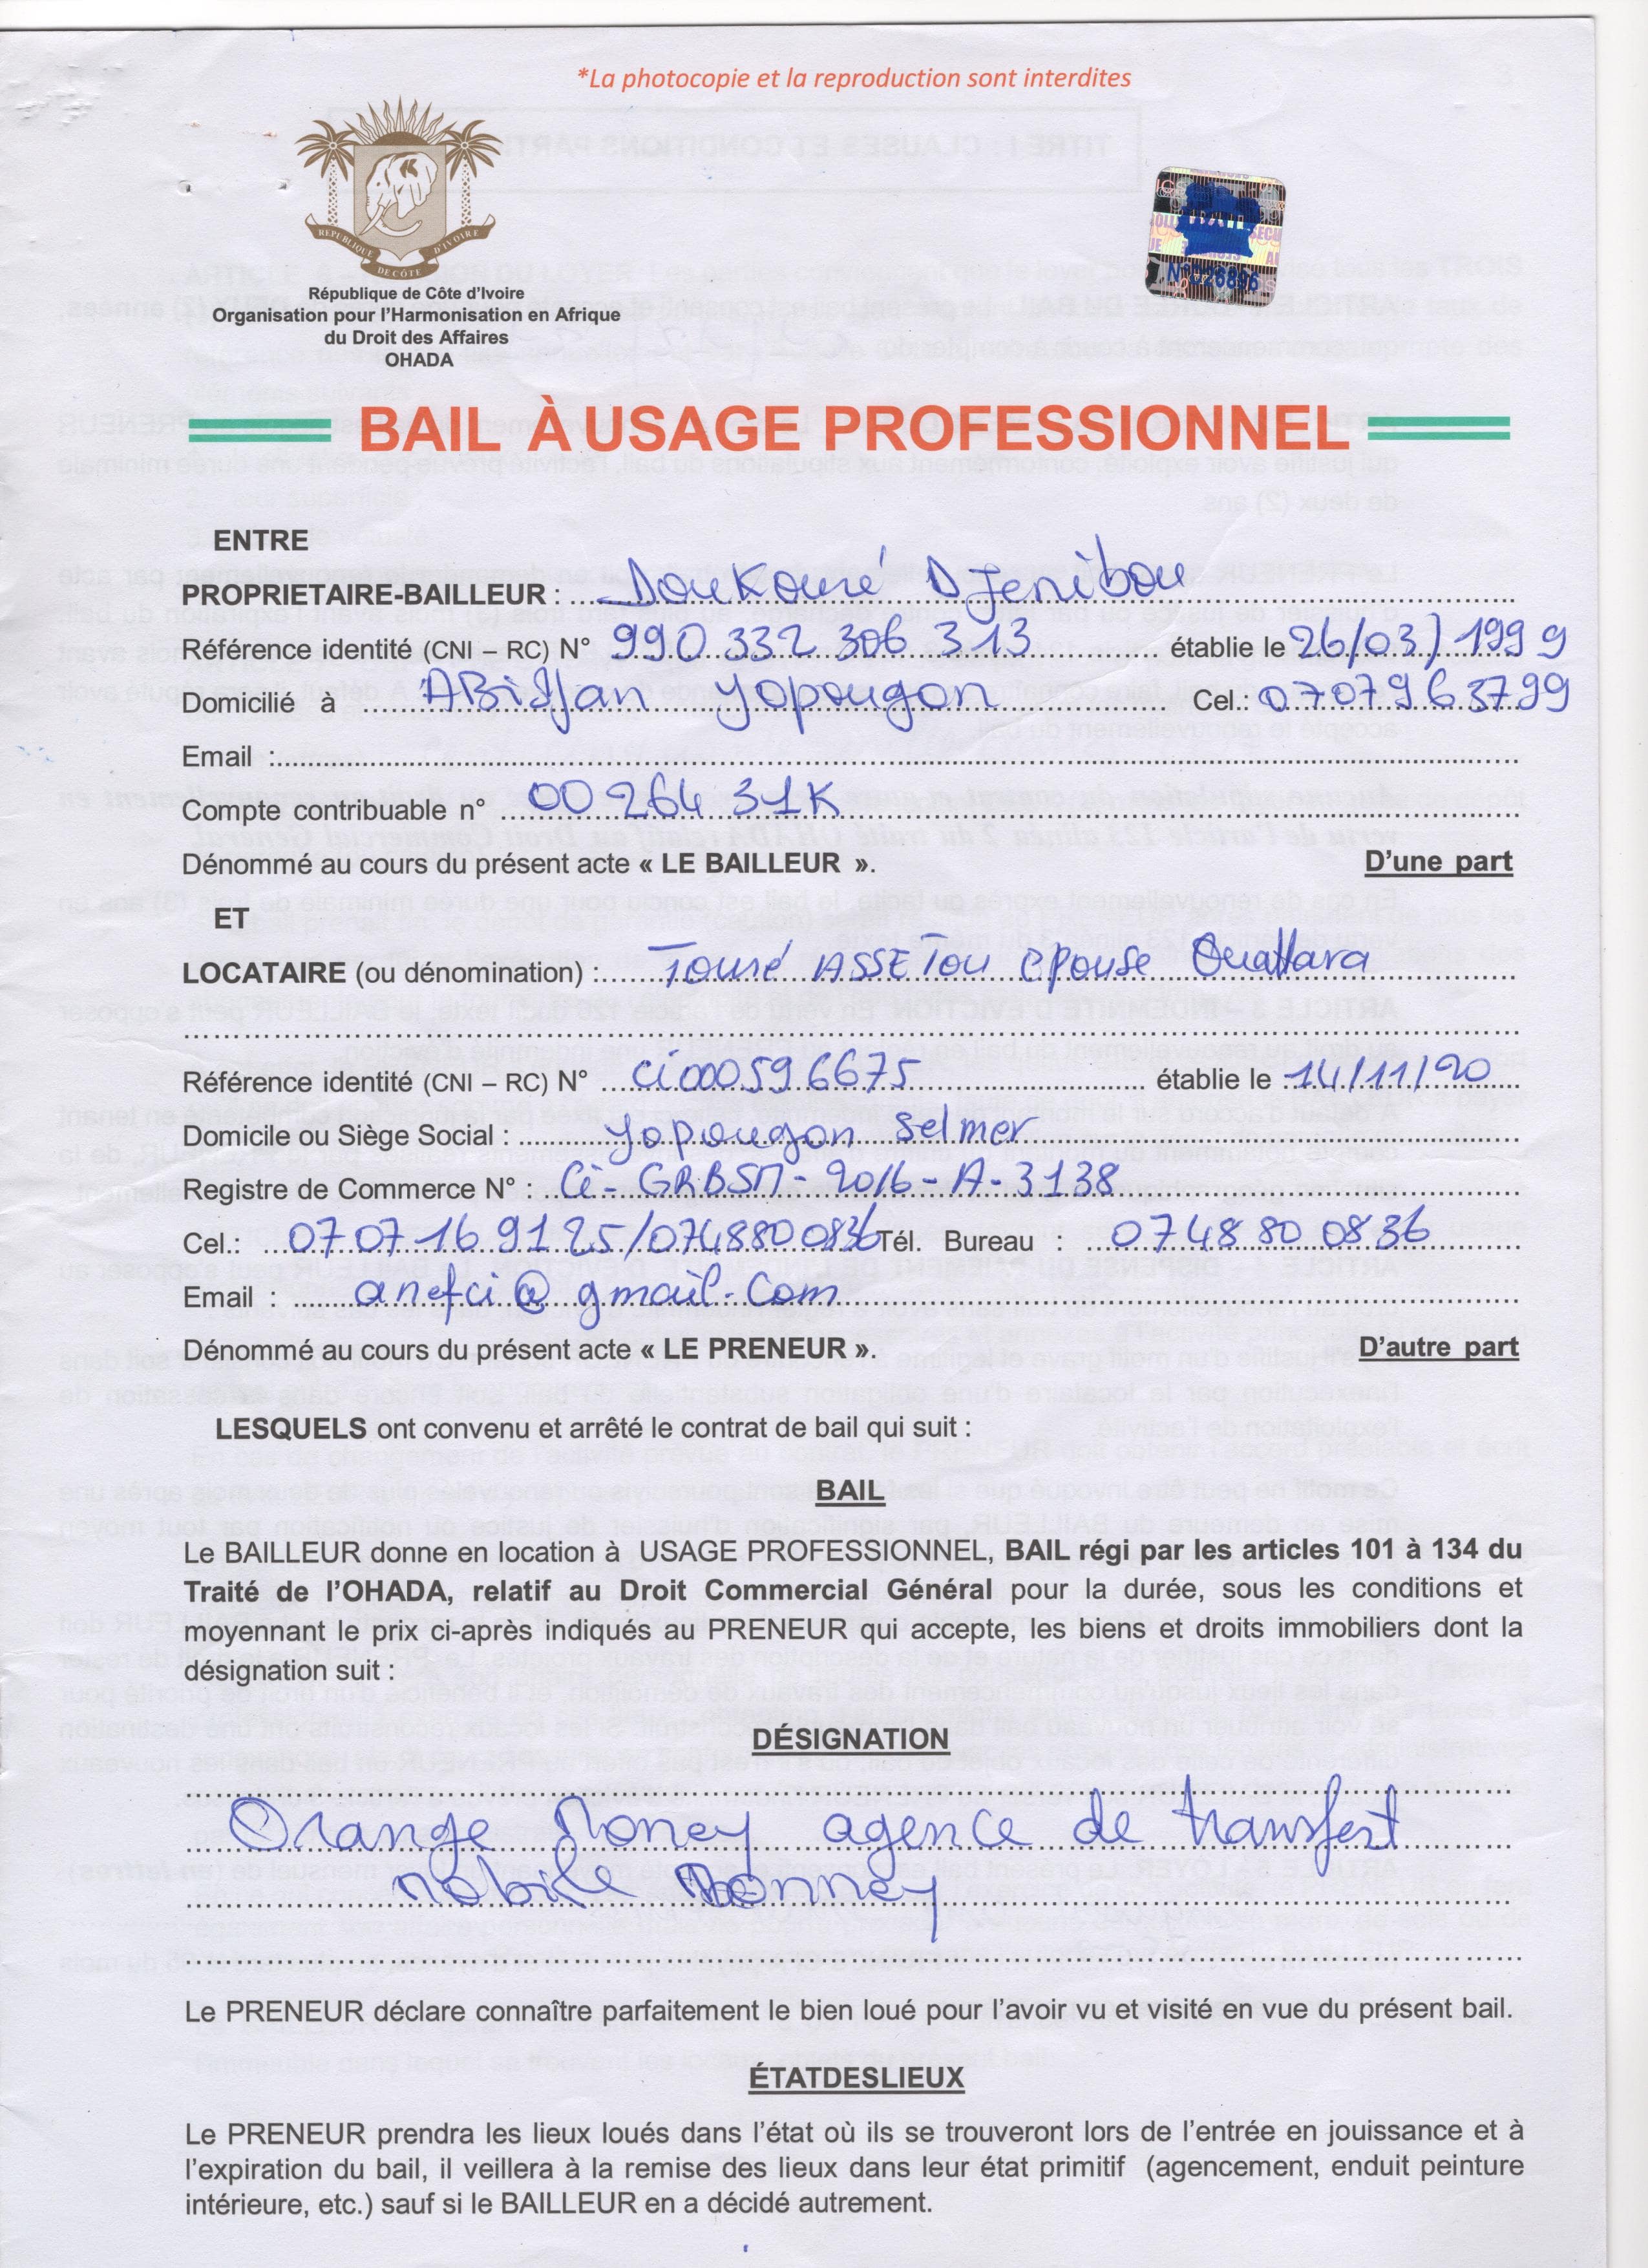 *La photocopie et la reproduction sont interdites
REPUBLIQUE DE CÔTE D'IVOIRE
N°026896
République de Côte d'Ivoire
Organisation pour l'Harmonisation en Afrique
du Droit des Affaires
OHADA
BAIL À USAGE PROFESSIONNEL
ENTRE
PROPRIETAIRE-BAILLEUR : Doukouré Djenibou
Référence identité (CNI – RC) N° 990 332 306 313 établie le 26/03/1999
Domicilié à ABidjan yopougon Cel.: 0707963799
Email :
Compte contribuable n° 00 264 31K
Dénommé au cours du présent acte « LE BAILLEUR ». D'une part
ET
LOCATAIRE (ou dénomination) : Touré ASSETou epouse Ouattara
Référence identité (CNI – RC) N° ci000596675 établie le 14/11/20
Domicile ou Siège Social : yopougon selmer
Registre de Commerce N° : Ci-GRBSM-2016-A-3138
Cel.: 07 07 16 91 25/0748800836 Tél. Bureau : 07 48 80 08 36
Email : anefci@gmail.Com
Dénommé au cours du présent acte « LE PRENEUR ». D'autre part
LESQUELS ont convenu et arrêté le contrat de bail qui suit :
BAIL
Le BAILLEUR donne en location à USAGE PROFESSIONNEL, BAIL régi par les articles 101 à 134 du
Traité de l'OHADA, relatif au Droit Commercial Général pour la durée, sous les conditions et
moyennant le prix ci-après indiqués au PRENEUR qui accepte, les biens et droits immobiliers dont la
désignation suit :
DÉSIGNATION
Orange Money agence de transfert
mobile Monney
Le PRENEUR déclare connaître parfaitement le bien loué pour l'avoir vu et visité en vue du présent bail.
ÉTATDESLIEUX
Le PRENEUR prendra les lieux loués dans l'état où ils se trouveront lors de l'entrée en jouissance et à
l'expiration du bail, il veillera à la remise des lieux dans leur état primitif (agencement, enduit peinture
intérieure, etc.) sauf si le BAILLEUR en a décidé autrement.